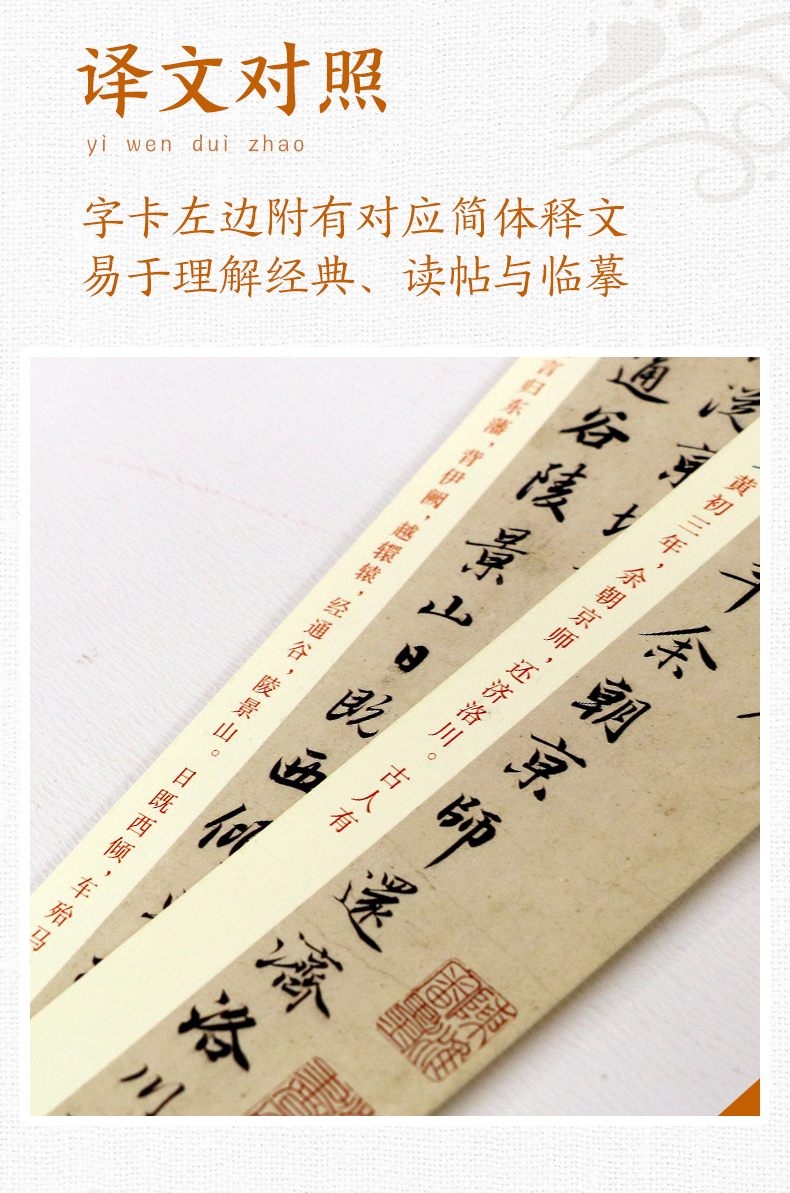 译文对照
yì wen duì zhao
字卡左边附有对应简体释文
易于理解经典、读帖与临摹
言归东藩，背伊阙，越轘辕，经通谷，陵景山。日既西倾，车殆马
通谷陵景山日既西倾
京
黄初三年，余朝京师，还济洛川。古人有
年余朝京師還濟洛川